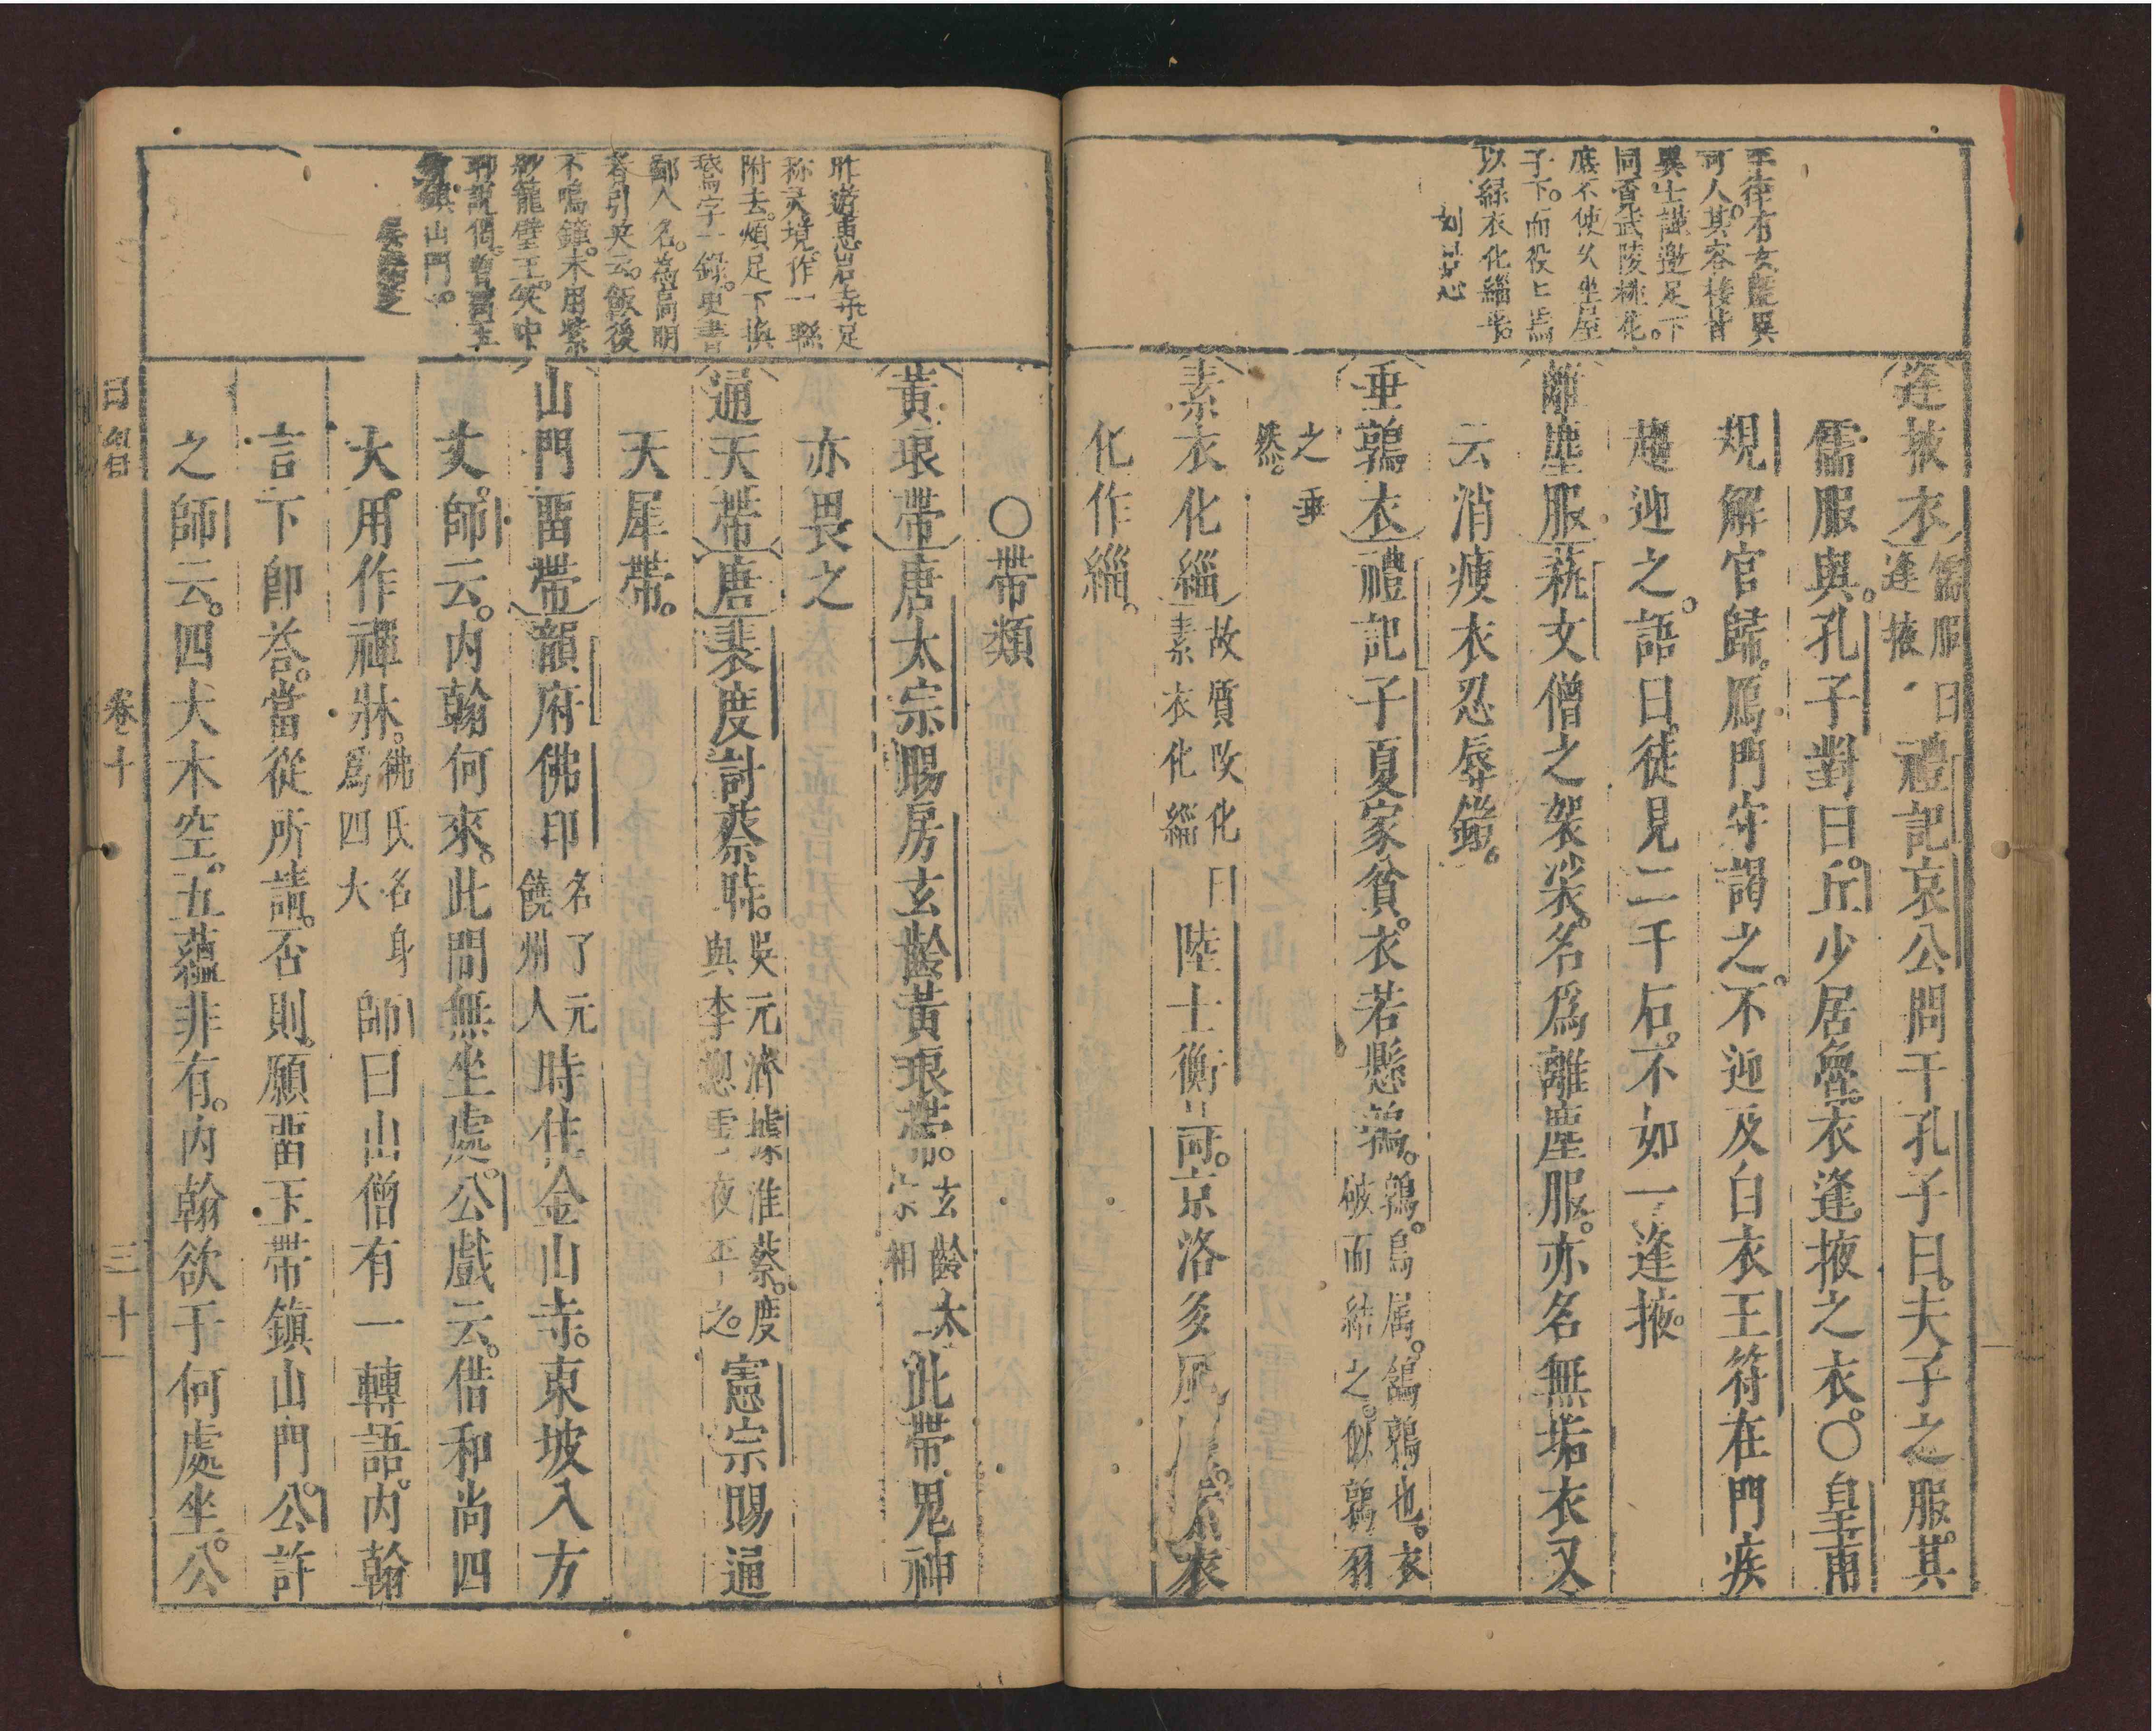 可人其容棲昔
異士謹邀足下
同覓武陵桃花
底不使久坐屋
子下而役匕焉
以緑衣化緇乎
逢掖衣 儒服曰逢掖 禮記哀公問于孔子曰。夫子之服。其
儒服與。孔子對曰。丘少居魯。衣逢掖之衣。〇皇甫
規解官歸。鴈門守謁之。不迎及白衣王符在門疾
趨迎之。語曰。徒見二千石。不如一逢掖。
離塵服 蓺文僧之袈裟。名為離塵服。亦名無垢衣又
云消瘦衣忍辱鎧。
垂鶉衣 禮記子夏家貧。衣若懸鶉。鶉。鳥属。鵪鶉也。衣破而結之。似鶉羽
之垂然。
素衣化緇 故質改化曰素衣化緇 陸士衡詩。京洛多風 衣
化作緇。
〇帶類
黃琅帶 唐太宗賜房玄齡黃琅帶。玄齡太宗相 此帶鬼神
亦畏之
通天帶 唐裴度討蔡時。吳元濟據淮蔡。度與李愬雪夜平之。 憲宗賜通
天犀帶。
山門畱帶 韻府佛印 名了元饒州人 時住金山寺。東坡入方
丈。師云。内翰何來。此間無坐處。公戲云。借和尚四
大。用作禪牀。佛氏名身為四大 師曰山僧有一轉語。内翰
言下即荅。當從所請。否則。願畱玉帶鎮山門。公許
之師云。四大本空。五蘊非有。内翰欲于何處坐。公
昨遊惠岩寺足
称入境。作一聯
附去。煩足下換
鵞字一錄。吏書
鄙人名。蓋高明
者引笑云。飯後
不鳴鐘。未用紫
紗籠壁王。笑中
山門
卷十
三十一